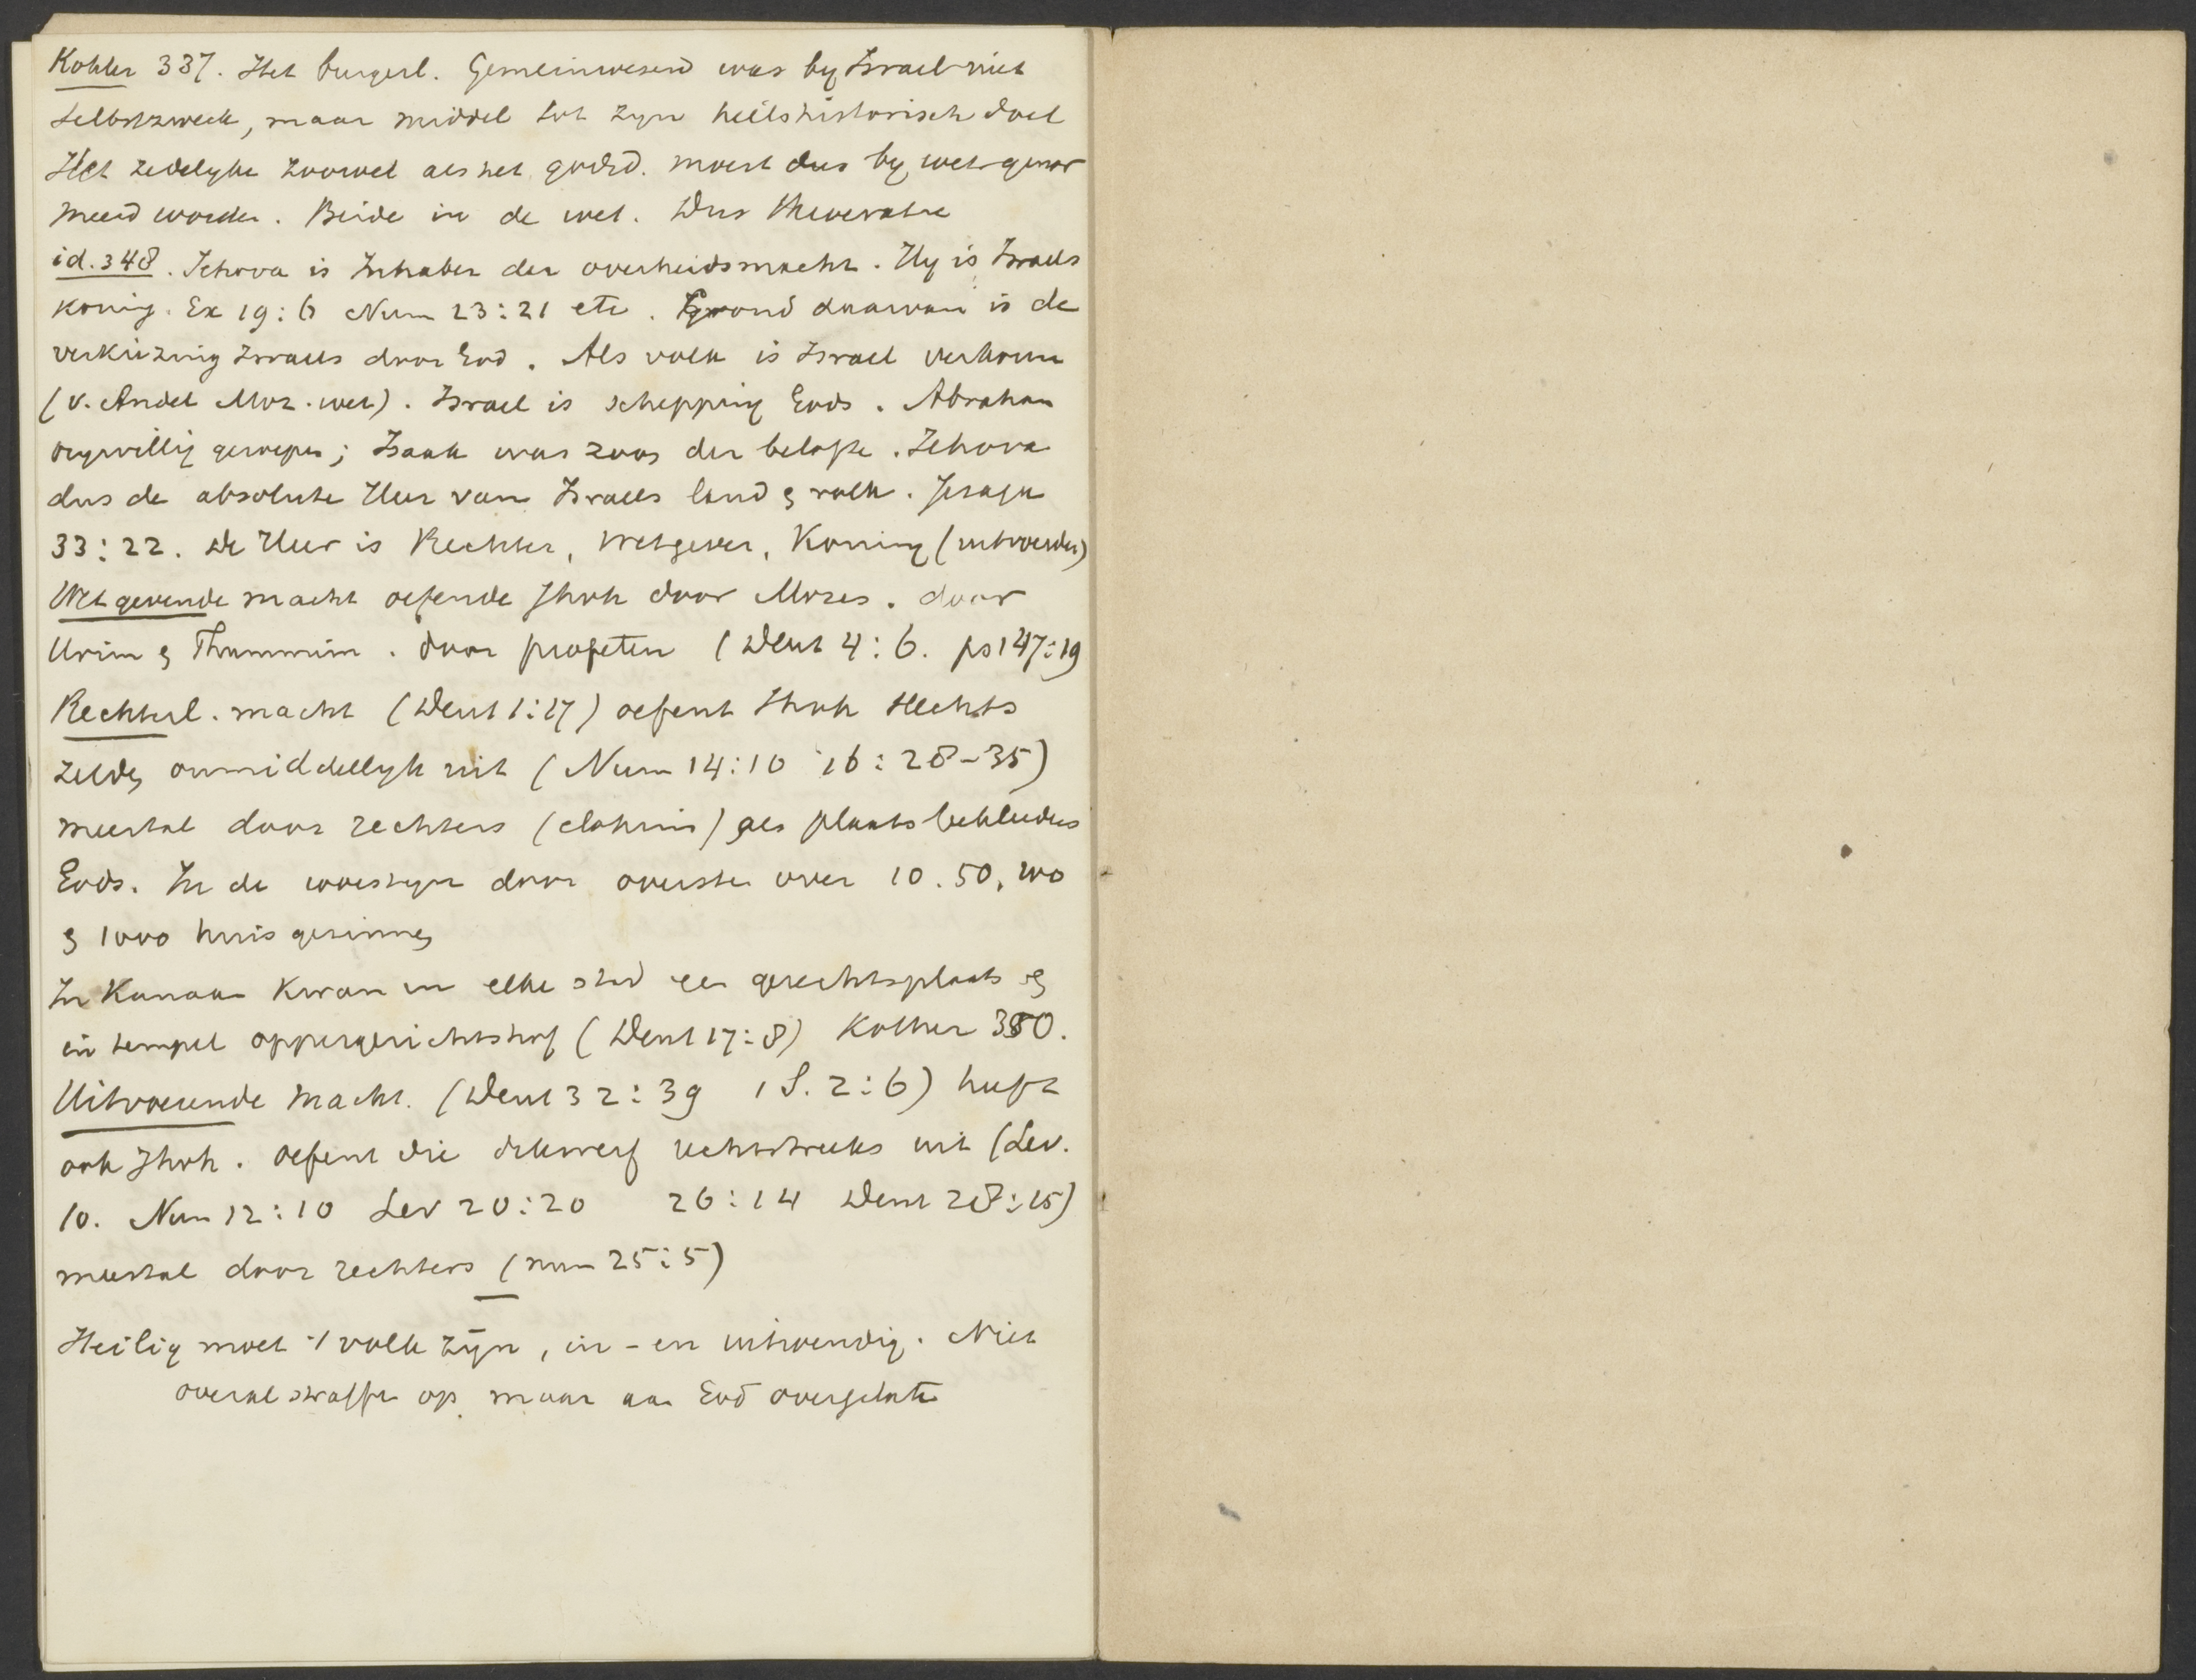 Kohler 337. Het burgerl. Gemeinwesend was by Israel niet
Selbstzweck, maar middel tot zyn heilshistorisch doel
Het zedelyke zoowel als het godsd. moest dus by wet genor
meerd worden. Beide in de wet. Dus theocratie
id. 348. Jehova is Inhaber der overheidsmacht. Hy is Israels
koning. Ex 19:6 Num 23:21 etc. Grond daarvan is de
verkiezing Israels door God. Als volk is Israel verkoren
(v. Andel Moz. wet). Israel is schepping Gods. Abraham
vrywillig geroepen; Isaak was zoon der belofte. Jehova
dus de absolute Heer van Israels land & volk. Jesaja
33:22. De Heer is Rechter, Wetgever, Koning (uitvoerder)
Wetgevende macht oefende Jhvh door Mozes. door
Urim & Thummim. door profeten (Deut 4:6. ps 147:19
Rechterl. macht (Deut 1:17) oefent Jhvh slechts
zelden onmiddellyk uit (Num 14:10 16:28-35)
meestal door rechters (elohim) als plaatsbekleeders
Gods. In de woestyn door oversten over 10. 50, 100
& 1000 huisgezinnen
In Kanaan kwam in elke stad een gerechtsplaats &
in tempel oppergerichtshof (Deut 17:8) Kohler 350.
Uitvoerende macht. (Deut 32:39 1 S. 2:6) heeft
ook Jhvh. oefent die dikwerf rechtstreeks uit (Lev.
10. Num 12:10 Lev 20:20 26:14 Deut 28:15)
meestal door rechters (num 25:5)
Heilig moet 't volk zyn, in- en uitwendig. Niet
overal straffen op, maar aan God overgelaten